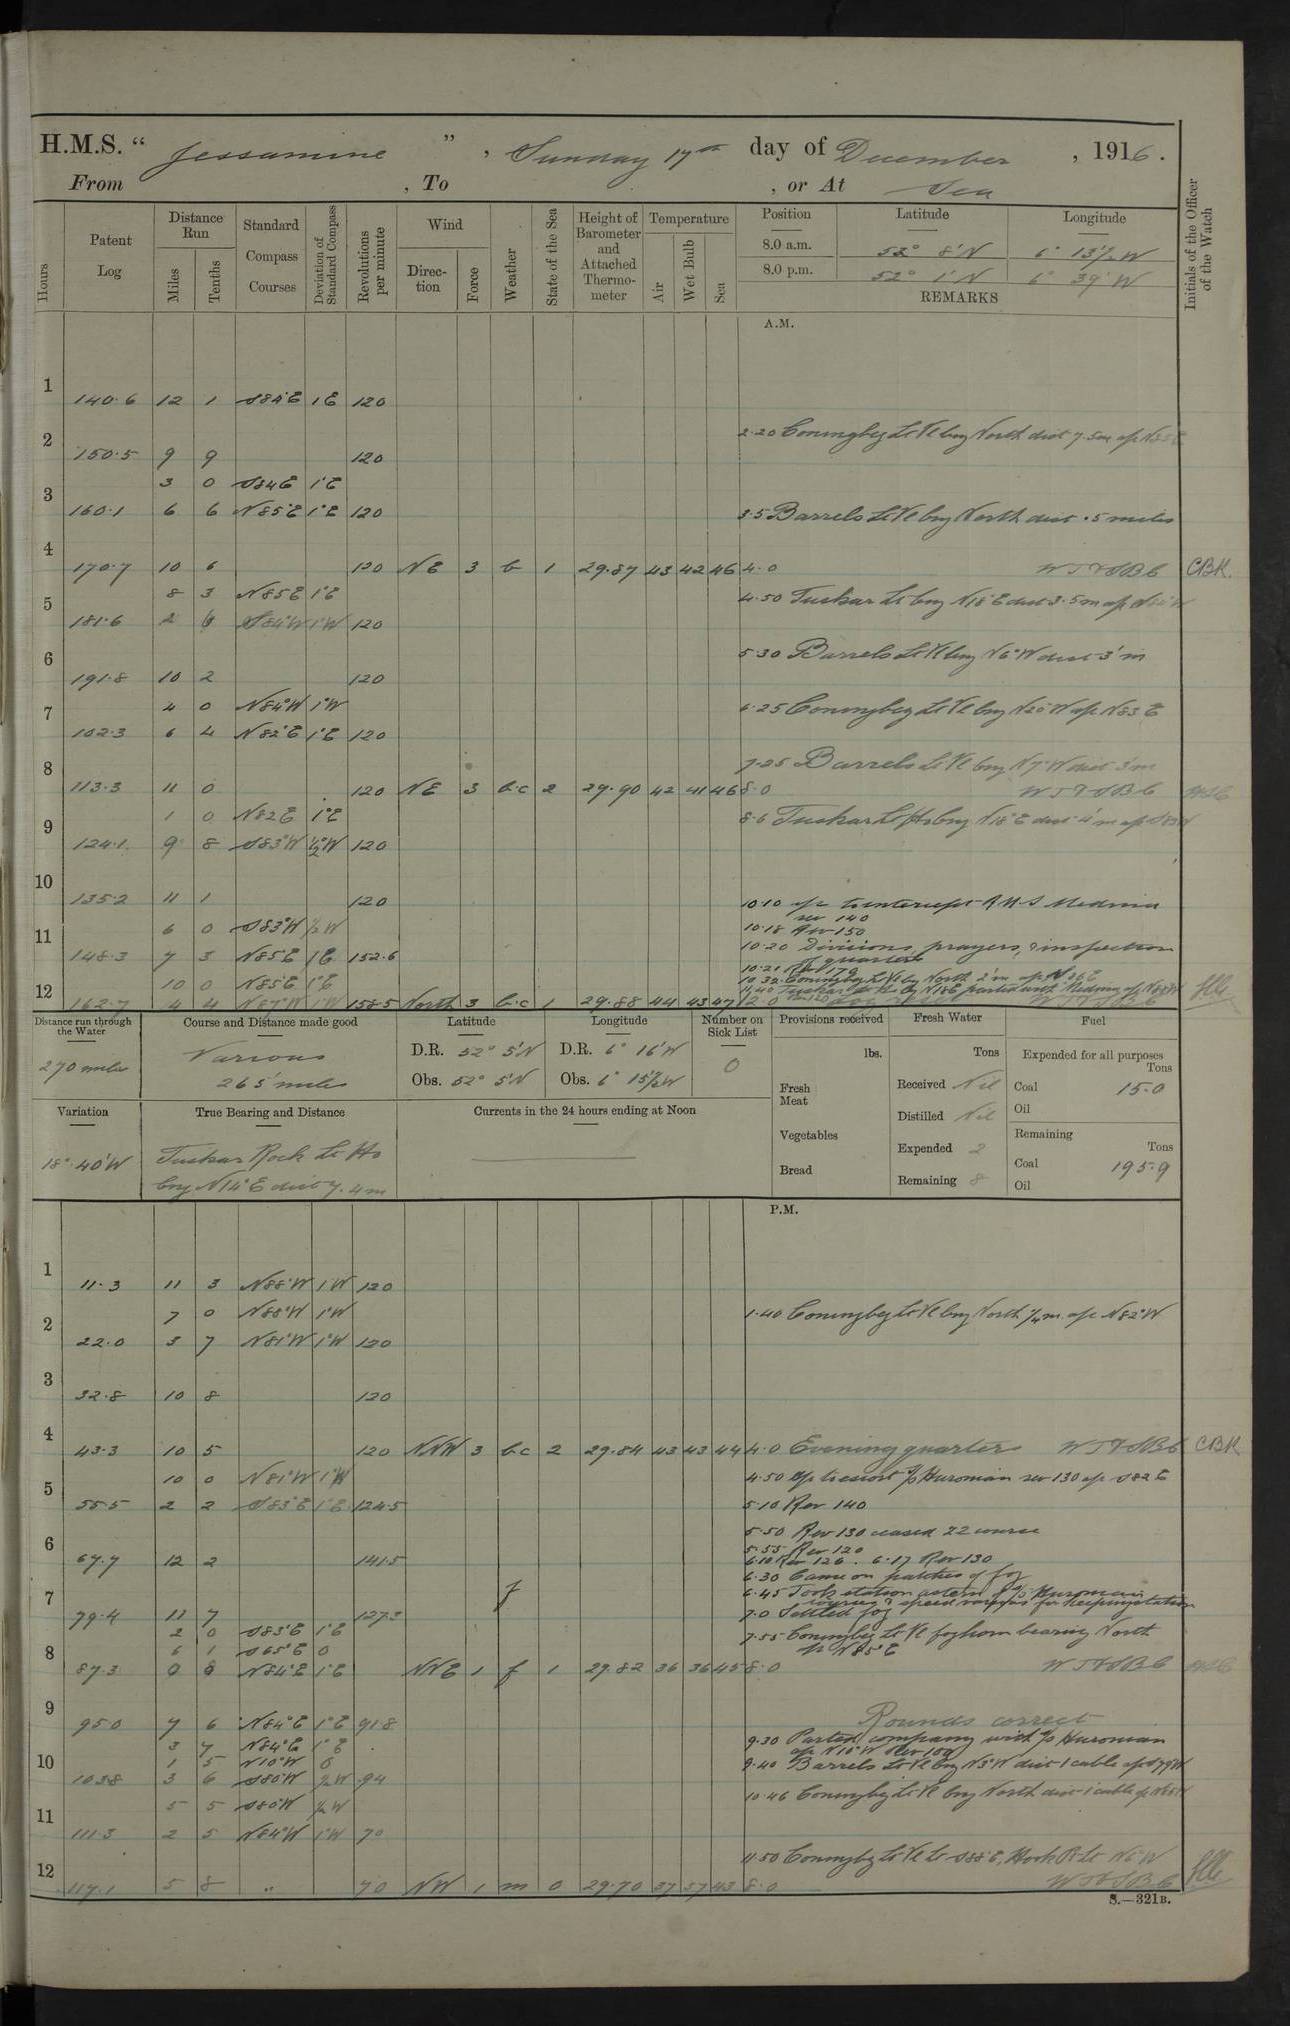 H.M.S. “ Jessamine ” , Sunday 17th day of December , 1916 .
From , To , or At Sea
Hours
Patent Log
Distance Run
Miles
Tenths
Standard Compass Courses
Deviation of Standard Compass
Revolutions per minute
Wind
Direc-tion
Force
Weather
State of the Sea
Height of Barometer and Attached Thermo-meter
Temperature
Air
Wet Bulb
Sea
Position Latitude Longitude
8.0 a.m. 52° 8'N 6° 13½'W
8.0 p.m. 52° 1'N 6° 39'W
REMARKS
Initials of the Officer of the Watch
A.M.
1 140.6 12 1 S84°E 1°E 120
2.20 Coningbeg Lt Vl brg North dist 7.5m a/c N85E
2 150.5 9 9 120
3 0 S84E 1°E
3 160.1 6 6 N85°E 1°E 120 3.5 Barrels Lt Vl brg North dist .5 miles
4 170.7 10 6 120 NE 3 b 1 29.87 43 42 46 4.0 CBK.
8 3 N85E 1°E 4.50 Tuskar Lt brg N18°E dist 3.5m a/c
5 181.6 2 6 S84°W 1°W 120
5.30 Barrels Lt Vl brg N6°W dist 3'm
6 191.8 10 2 120
4 0 N84°W 1°W 6.25 Coningbeg Lt Vl brg N20°W a/c N83E
7 102.3 6 4 N82°E 1°E 120
7.25 Barrels Lt Vl brg N7°W dist 3'm
8 113.3 11 0 120 NE 3 b.c 2 29.90 42 41 46 8.0
1 0 N82E 1°E 8.6 Tuskar Lt Ho brg N18°E dist 4'm a/c
9 124.1 9 8 S83°W ½W 120
10 135.2 11 1 120 10.10 a/c to intercept R.M.S Medina
rev 140
6 0 S83°W ½W 10.18 Rev 150
10.20 Divisions, prayers, & inspection
11 148.3 7 3 N85E 1E 152.6 of quarters
10.21 Rev 179
10 0 N85E 1°E 10.32 Coningbeg Lt Vl brg North 2'm
11.40 Tuskar Lt Ho brg N18E parted with Medina
12 162.7 4 4 N87°W 1W 158.5 North 3 b.c 1 29.88 44 43 47 12.0
Distance run through the Water
270 miles
Course and Distance made good
Various
265 miles
Latitude
D.R. 52° 5'N
Obs. 52° 5'N
Longitude
D.R. 6° 16'W
Obs. 6° 15½'W
Number on Sick List
0
Provisions received
lbs.
Fresh Meat
Vegetables
Bread
Fresh Water
Tons
Received Nil
Distilled Nil
Expended 2
Remaining 8
Fuel
Expended for all purposes
Tons
Coal 15.0
Oil
Remaining
Tons
Coal 195.9
Oil
Variation
18°.40'W
True Bearing and Distance
Tuskar Rock Lt Ho
brg N14°E dist 7.4m
Currents in the 24 hours ending at Noon
P.M.
1 11.3 11 3 N88°W 1W 120
7 0 N88°W 1°W 1.40 Coningbeg Lt Vl brg North ¼m a/c N82°W
2 22.0 3 7 N81°W 1°W 120
3 32.8 10 8 120
4 43.3 10 5 120 NNW 3 b.c 2 29.84 43 43 44 4.0 Evening quarters CBK
10 0 N81°W 1°W 4.50 a/c to escort S/S Huronian rev 130 a/c S82E
5 55.5 2 2 S83°E 1°E 124.5 5.10 Rev 140
5.50 Rev 130 ceased ZZ course
5.55 Rev 120
6 67.7 12 2 141.5 6.10 Rev 126. 6.17 Rev 130
6.30 Came on patches of fog
f 6.45 Took station astern of S/S Huronian
courses & speed various for keeping station
7 79.4 11 7 127.3 7.0 Settled fog
2 0 S83°E 1°E 7.55 Coningbeg Lt Vl foghorn bearing North
6 1 S65°E 0 a/c N85°E
8 87.3 0 8 N84°E 1°E NNE 1 f 1 29.82 36 36 45 8.0
9 95.0 7 6 N84°E 1°E 91.8 Rounds correct
3 7 N84°E 1°E 9.30 Parted company with S/S Huronian
a/c N10°W Rev 100
1 5 N10°W 0 9.40 Barrels Lt Vl brg N3°W dist 1 cable a/c S79W
10 103.8 3 6 S80°W ½W 94
5 5 S80W ½W 10.46 Coningbeg Lt Vl brg North dist 1 cable a/c
11 111.3 2 5 N84°W 1°W 70
11.50 Coningbeg Lt Vl S88°E, Hook Pt Lt N6°W
12 117.1 5 8 " 70 NW 1 m 0 29.70 37 37 43 8.0
S.—321B.